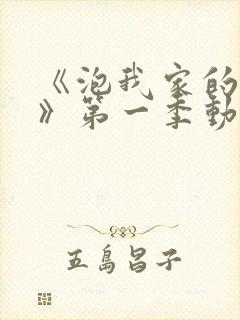 《泡我家的
》第一季動
五島昌子